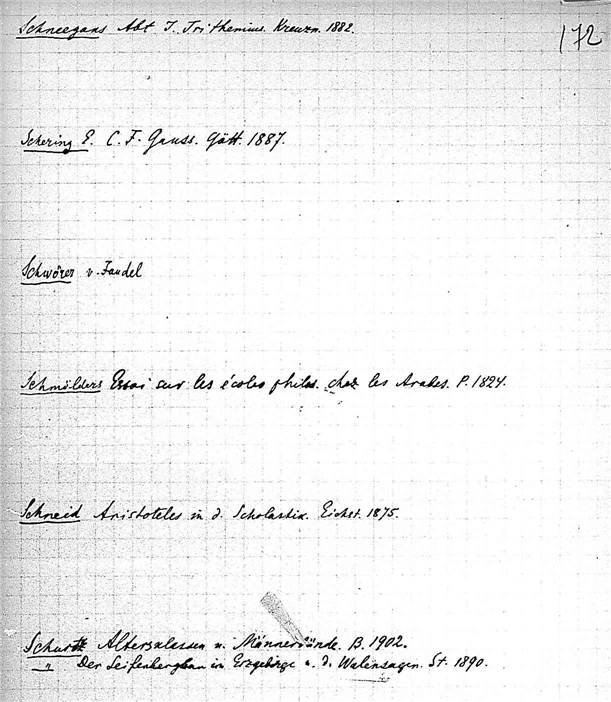 172
Schneegans Abt J. Trithemius. Kreuzn. 1882.
Schering E. C. F. Gauss. Gött. 1887.
Schwörer v. Faudel
Schmölders Essai sur les écoles philos. chez les Arabes. P. 1824.
Schneid Aristoteles in d. Scholastik. Eichst. 1875.
Schurtz Altersklassen u. Männerbünde. B. 1902.
" Der Seifenbergbau im Erzgebirge u. d. Walensagen. St. 1890.